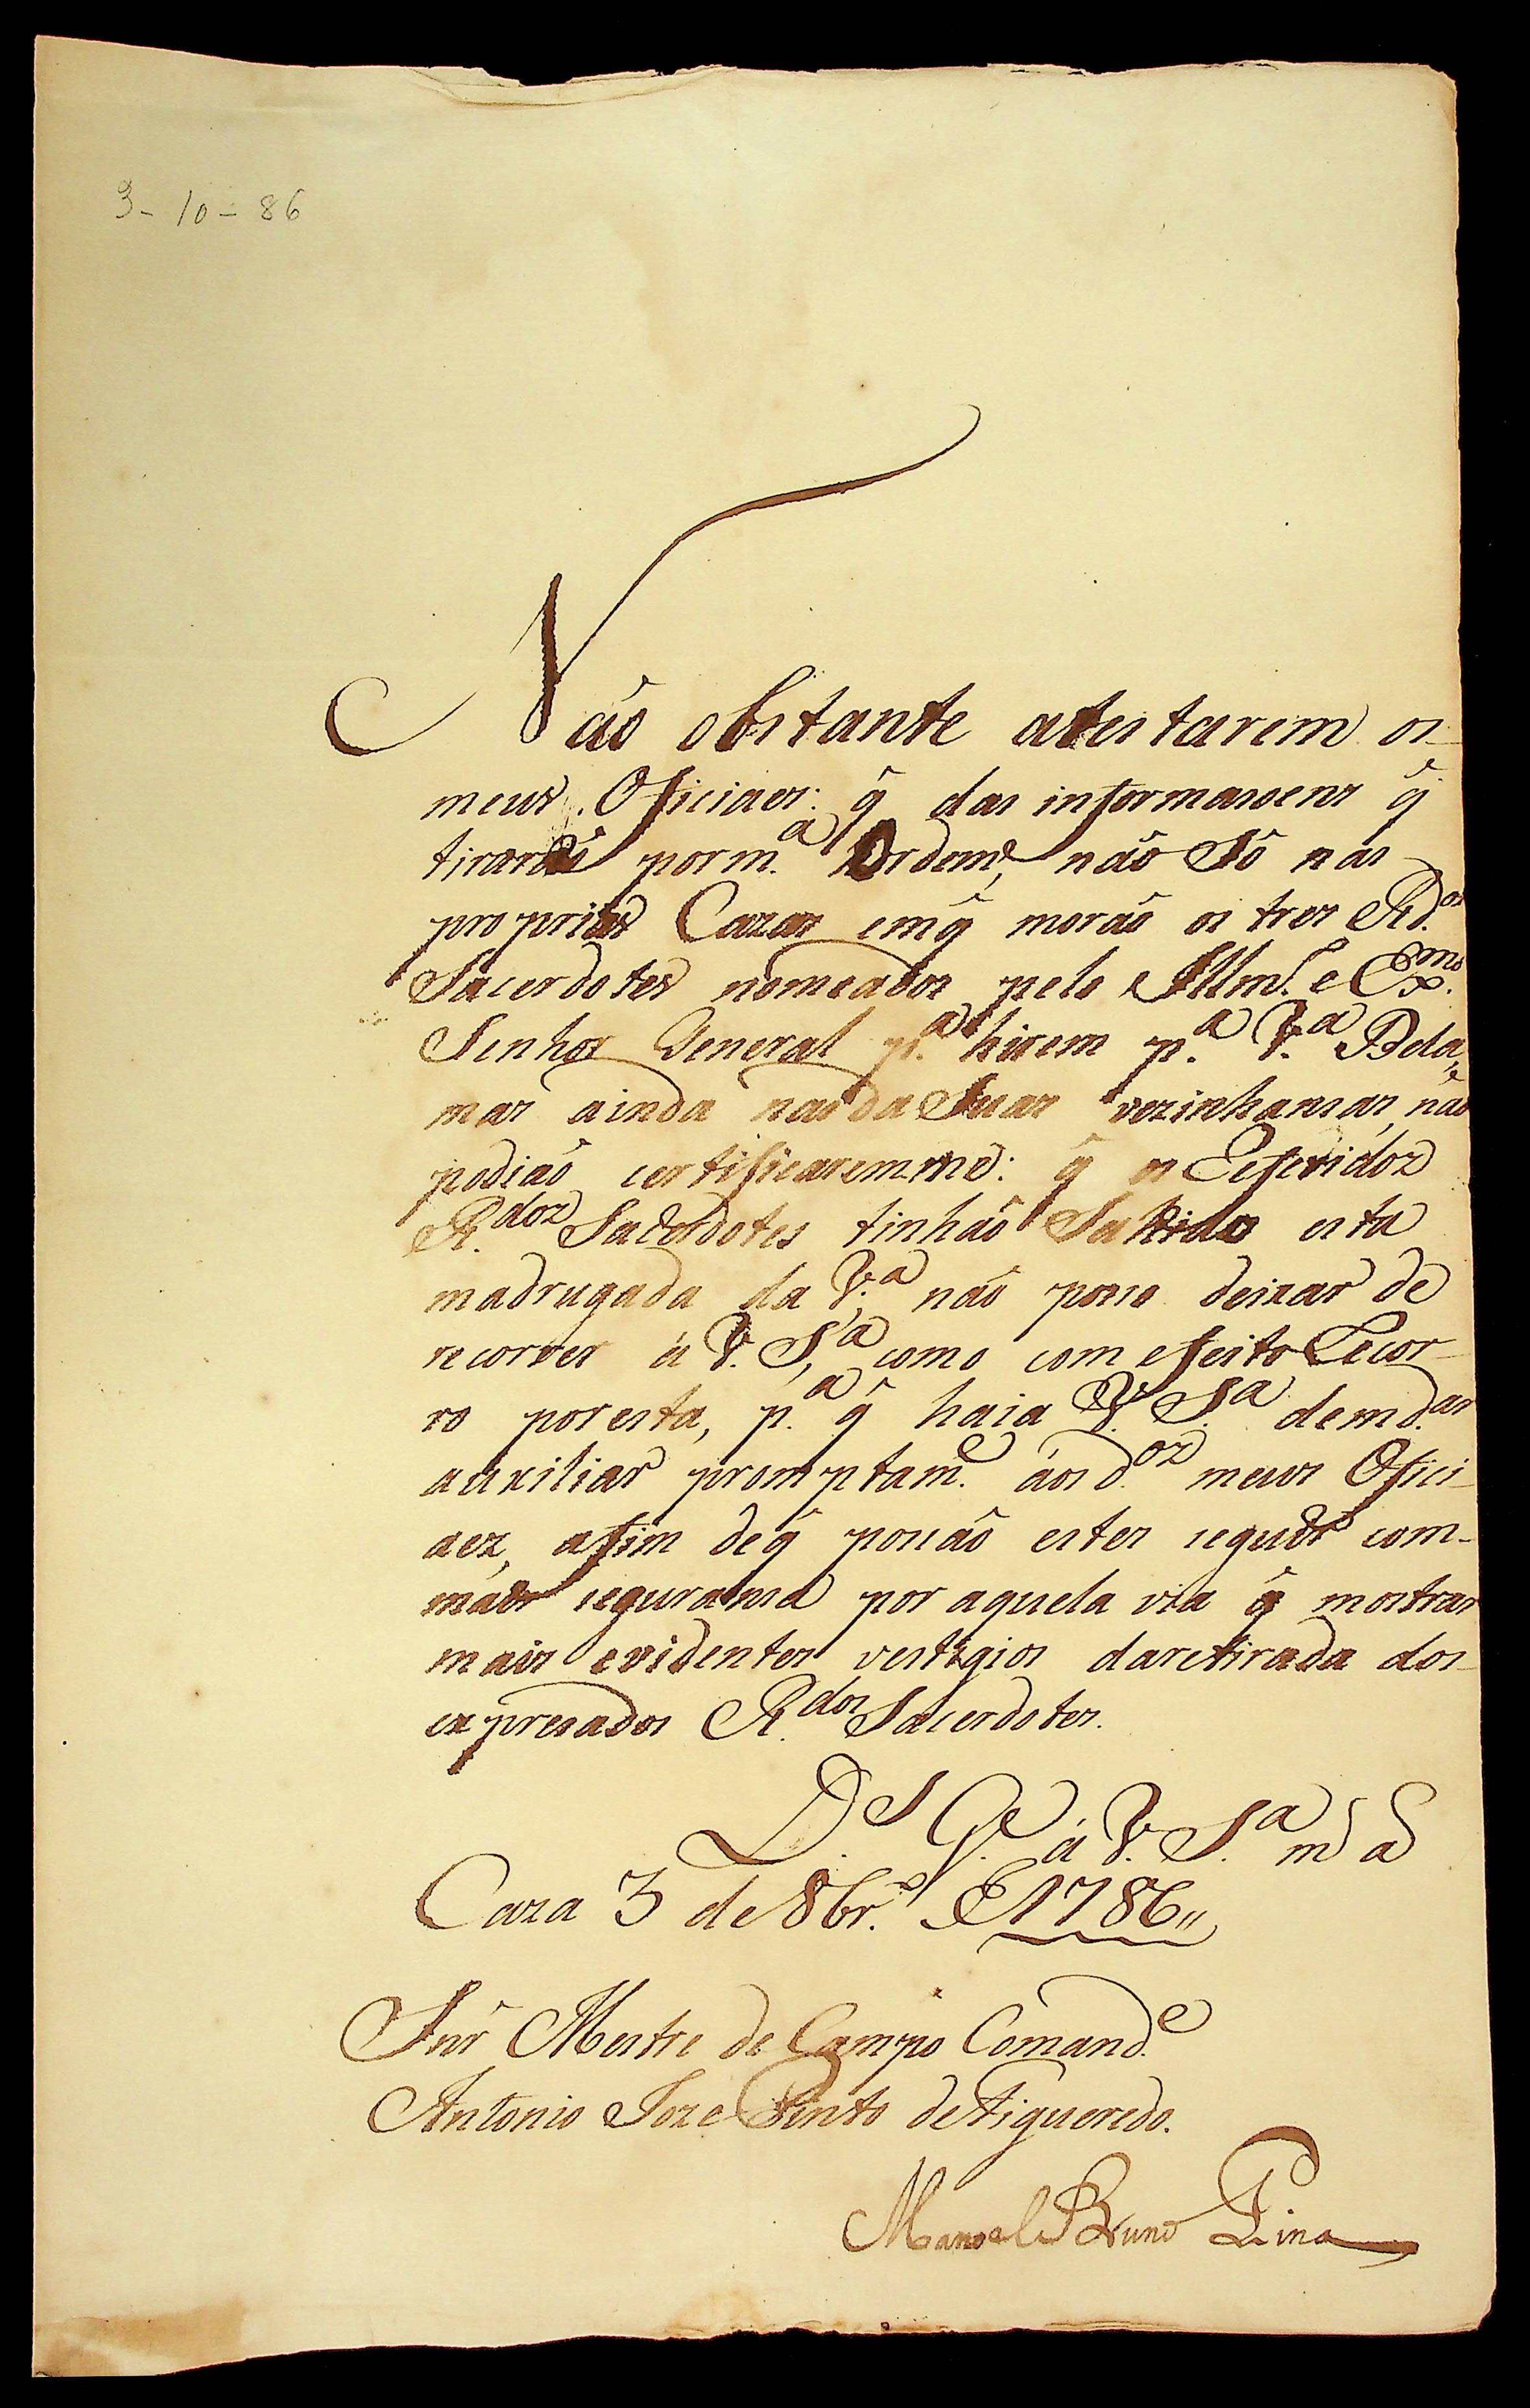 3-10-86
Não obstante atestarem os
meus Oficiaes: q̃ das informasoens q̃
tirarão por m.ª Ordem, não Só nas
proprias Cazas emq̃ morão os tres Rd.os
Sacerdotes nomeados pelo Illm.º e Exmo.
Senhor General p.ª hirem p.ª V.ª Bela,
mas ainda nas da Suas vezinhansas, não
podião certificaremme: q̃ os Referidoz
R.doz Sacerdotes tinhão Sahido esta
madrugada da V.ª não posso deixar de
recorrer á V. S.ª, como com efeito Recor-
ro por esta, p.ª q̃ haja V. S.ª demd.ar
auxiliar promptam.e áos d.oz meus Ofici-
aez, afim deq̃ possão estes seguir com-
maior seguransa por aquela via q̃ mostrar
mais evidentes vestigios daretirada dos-
expresados R.dos Sacerdotes.
D.s G.e á V. S.ª m.s a.s
Caza 3 de 8br.º de 1786,,
Snr̃ Mestre de Campo Comand.e
Antonio Joze Pinto de Figueredo.
Manoel Bruno Pina